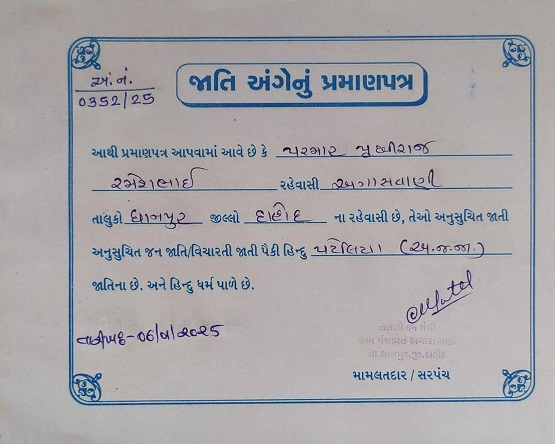 અ.નં.
0352/25
જાતિ અંગેનું પ્રમાણપત્ર
આથી પ્રમાણપત્ર આપવામાં આવે છે કે પરમાર પૃથ્વીરાજ
રમેશભાઈ રહેવાસી અગાસવાણી
તાલુકો ધાનપુર જીલ્લો દાહોદ ના રહેવાસી છે, તેઓ અનુસુચિત જાતી
અનુસુચિત જન જાતિ/વિચારતી જાતી પૈકી હિન્દુ પટેલિયા (અ.જ.જા.)
જાતિના છે. અને હિન્દુ ધર્મ પાળે છે.
તલાટી કમ મંત્રી
ગ્રામ પંચાયત અગાસવાણી
તા.ધાનપુર,જી.દાહોદ
મામલતદાર / સરપંચ